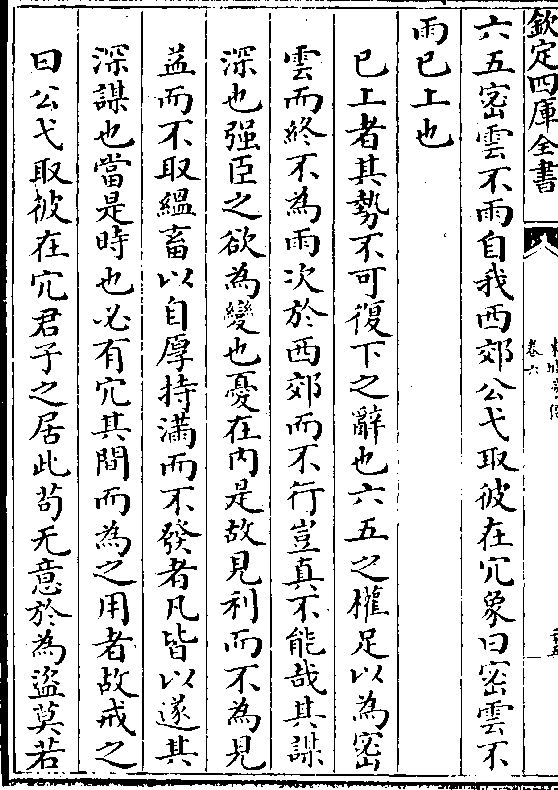 欽定四庫全書
卷六
六五密雲不雨自我西郊公弋取彼在穴象曰密雲不
雨已上也
已上者其勢不可復下之辭也六五之權足以為密
雲而終不為雨次於西郊而不行豈真不能哉其謀
深也强臣之欲為變也憂在内是故見利而不為見
益而不取緼畜以自厚持滿而不發者凡皆以遂其
深謀也當是時也必有穴其間而為之用者故戒之
曰公弋取彼在穴君子之居此苟无意於為盜莫若